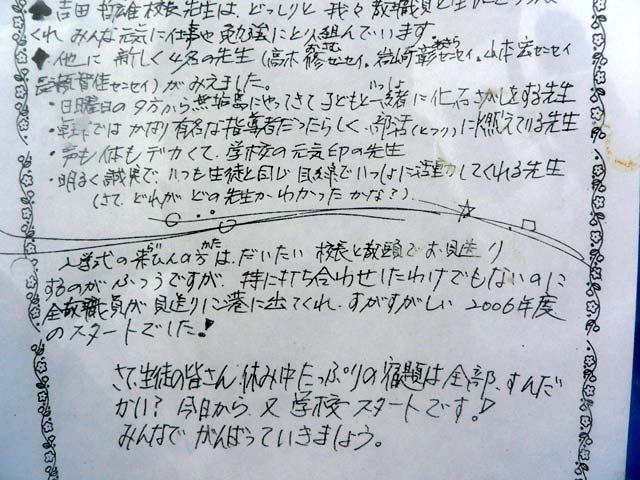 ♠ 吉田 哲雄 校長先生は、どっしりと 我々 教職員と生徒を
くれ みんな元気に仕事や勉強にとり組んでいます。
♠ 他に 新しく 4名の先生(高木 修センセイ、岩崎 彰センセイ、山本宏センセイ
智佳センセイ)がみえました。
・日曜日の夕方から無垢島にやってきて 子どもと一緒に化石さがしをする先生
・卓球では かなり有名な指導者だったらしく、部活(とっくり)に燃えている先生
・声も体もデカくて、学校の元気印の先生
・明るく誠実で いつも生徒と同じ目線でいっしょに活動してくれる先生
(さて、どれが どの先生か わかったかな?)
入学式の来ひんの方は、だいたい 校長と教頭で お見送り
するのが ふつうですが、特に打ち合わせしたわけでもないのに
全教職員が 見送りに港に出てくれ、すがすがしい 2006年度
のスタートでした!
さて、生徒の皆さん、休み中たっぷりの宿題は全部、すんだ
かい? 今日から 又 学校 スタートです!
みんなで がんばっていきましょう。